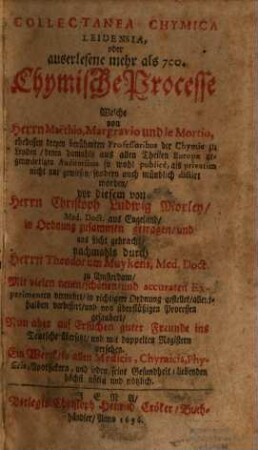 COLLECTANEA CHYMICA
LEIDENSIA,
oder
auserlesene mehr als 700.
Chymische Processe
Welche
von
Herrn Maëthio, Margravio und le Mortio,
ehedessen dreyen berühmten Professoribus der Chymie zu
Leyden / denen damahls aus allen Theilen Europæ ge-
genwärtigen Auditoribus so wohl publicè, als privatim
nicht nur gewiesen / sondern auch mündlich dictirt
worden /
vor diesem von
Herrn Christoph Ludwig Morley /
Med. Doct. aus Engeland /
in Ordnung zusammen getragen / und
ans Licht gebracht /
nachmahls durch
Herrn Theodorum Muykens, Med. Doct.
zu Amsterdam /
Mit vielen neuen / schönen / und accuraten Ex-
perimenten vermehrt / in richtigere Ordnung gestellet / aller-
halben verbessert / und von überflüßigen Processen
gesaubert /
Nun aber auf Ersuchen guter Freunde ins
Teutsche übersetzt / und mit doppelten Registern
versehen.
Ein Werck / so allen Medicis, Chymicis, Phy-
sicis, Apotheckern, und jeden seine Gesundheit liebenden
höchst nötig und nützlich.
JENA /
Verlegts Christoph Heinrich Cröker / Buch-
händler / Anno 1696.